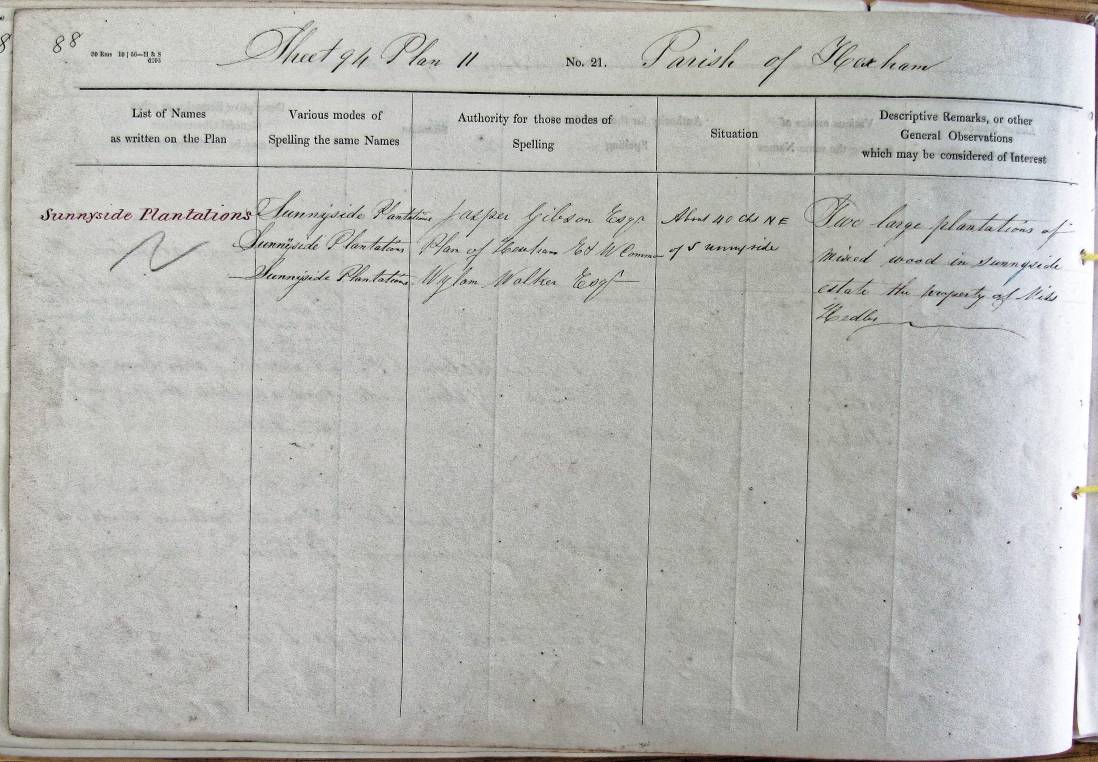 88
20 Rms 10 | 56—H & S
6293
Sheet 94 Plan 11 No. 21. Parish of Hexham
List of Names
as written on the Plan
Various modes of
Spelling the same Names
Authority for those modes of
Spelling
Situation
Descriptive Remarks, or other
General Observations
which may be considered of Interest
Sunnyside Plantations
Sunnyside Plantations
Sunnyside Plantations
Sunnyside Plantations
Jasper Gibson Esqr
Plan of Hexham E & W Common
Wylam Walker Esqr
About 40 Chs N E
of Sunnyside
Two large plantations of
mixed wood in sunnyside
estate the property of Miss
Hedley